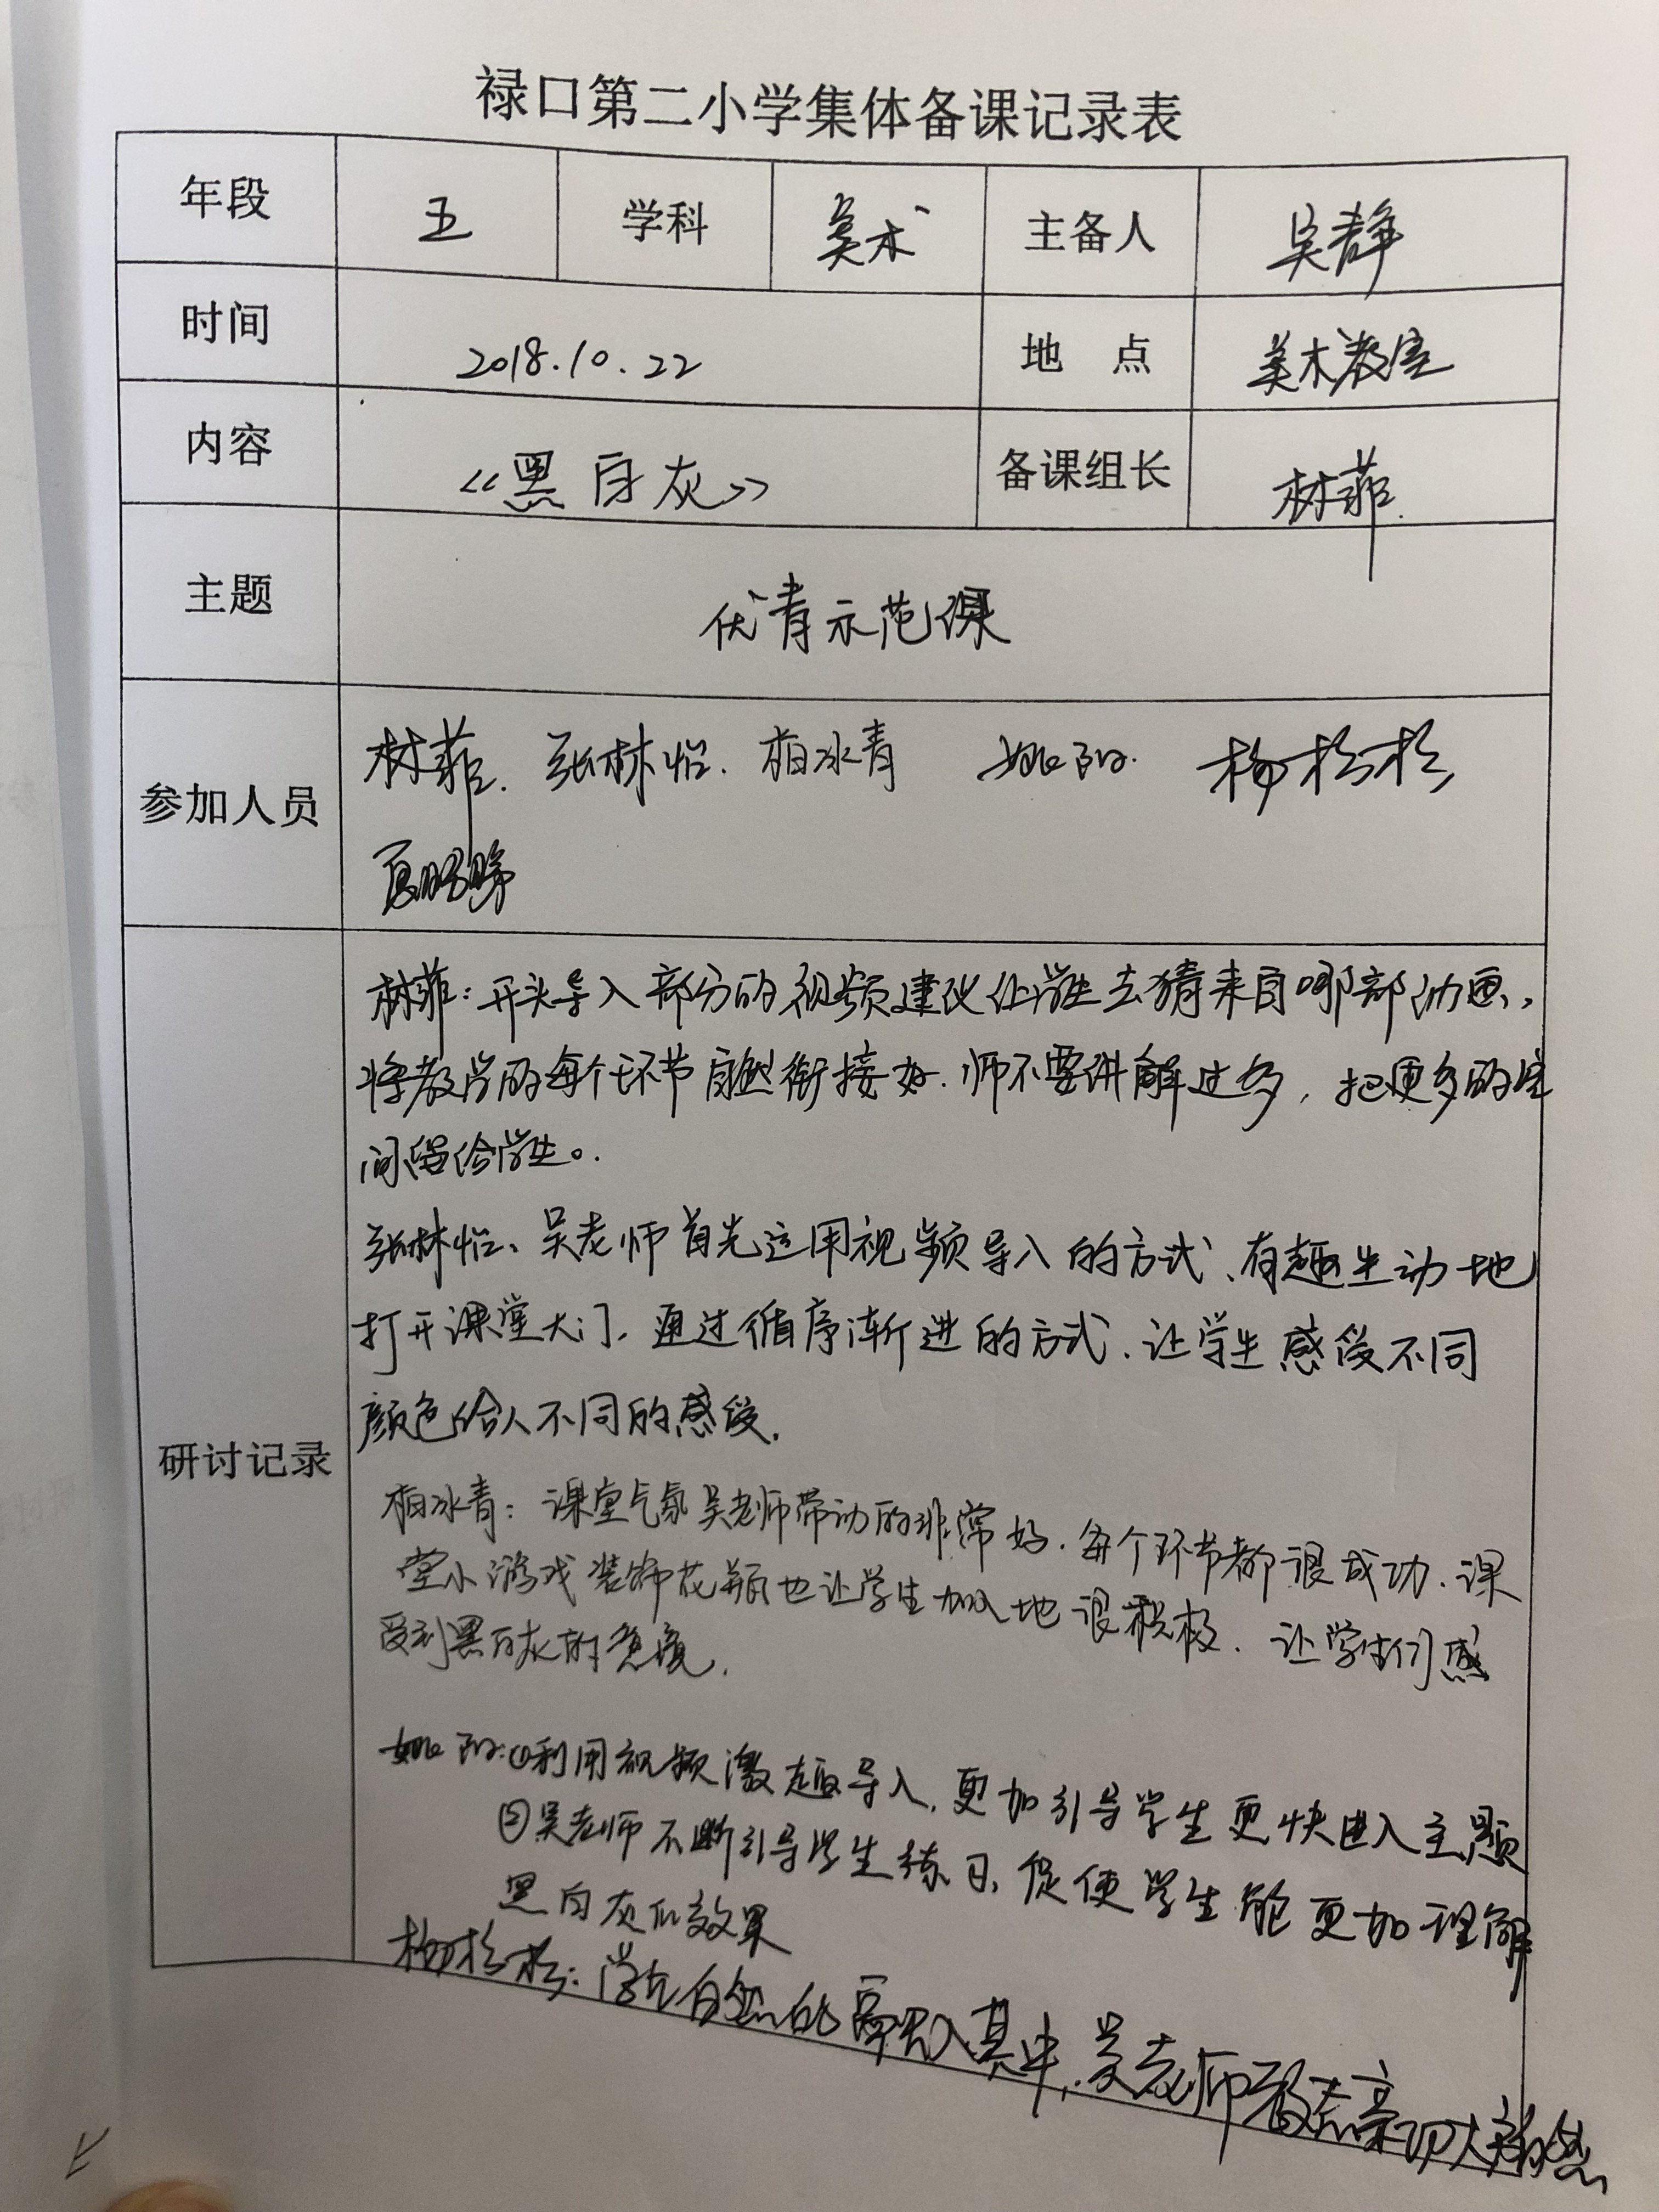 禄口第二小学集体备课记录表
年段 五 学科 美术 主备人 吴静
时间 2018.10.22 地 点 美术教室
内容 《黑白灰》 备课组长 林菲.
主题 优青示范课
参加人员 林菲. 张林怡. 柏冰青 姚 杨松松
夏
研讨记录
林菲:开头导入部分的视频建议让学生去猜来自哪部动画,
将教学的每个环节自然衔接好.师不要讲解过多,把更多的空
间留给学生。
张林怡、吴老师首先运用视频导入的方式、有趣生动地
打开课堂大门.通过循序渐进的方式.让学生感受不同
颜色给人不同的感受.
柏冰青:课堂气氛吴老师带动的非常好.每个环节都很成功.课
堂小游戏装饰花瓶也让学生加入地很积极.让学生们感
受到黑白灰的意境.
姚 :①利用视频激趣导入,更加引导学生更快进入主题
②吴老师不断引导学生练习,促使学生能更加理解
黑白灰的效果
杨松松:学生自然的融入其中,吴老师教态亲切大方自然